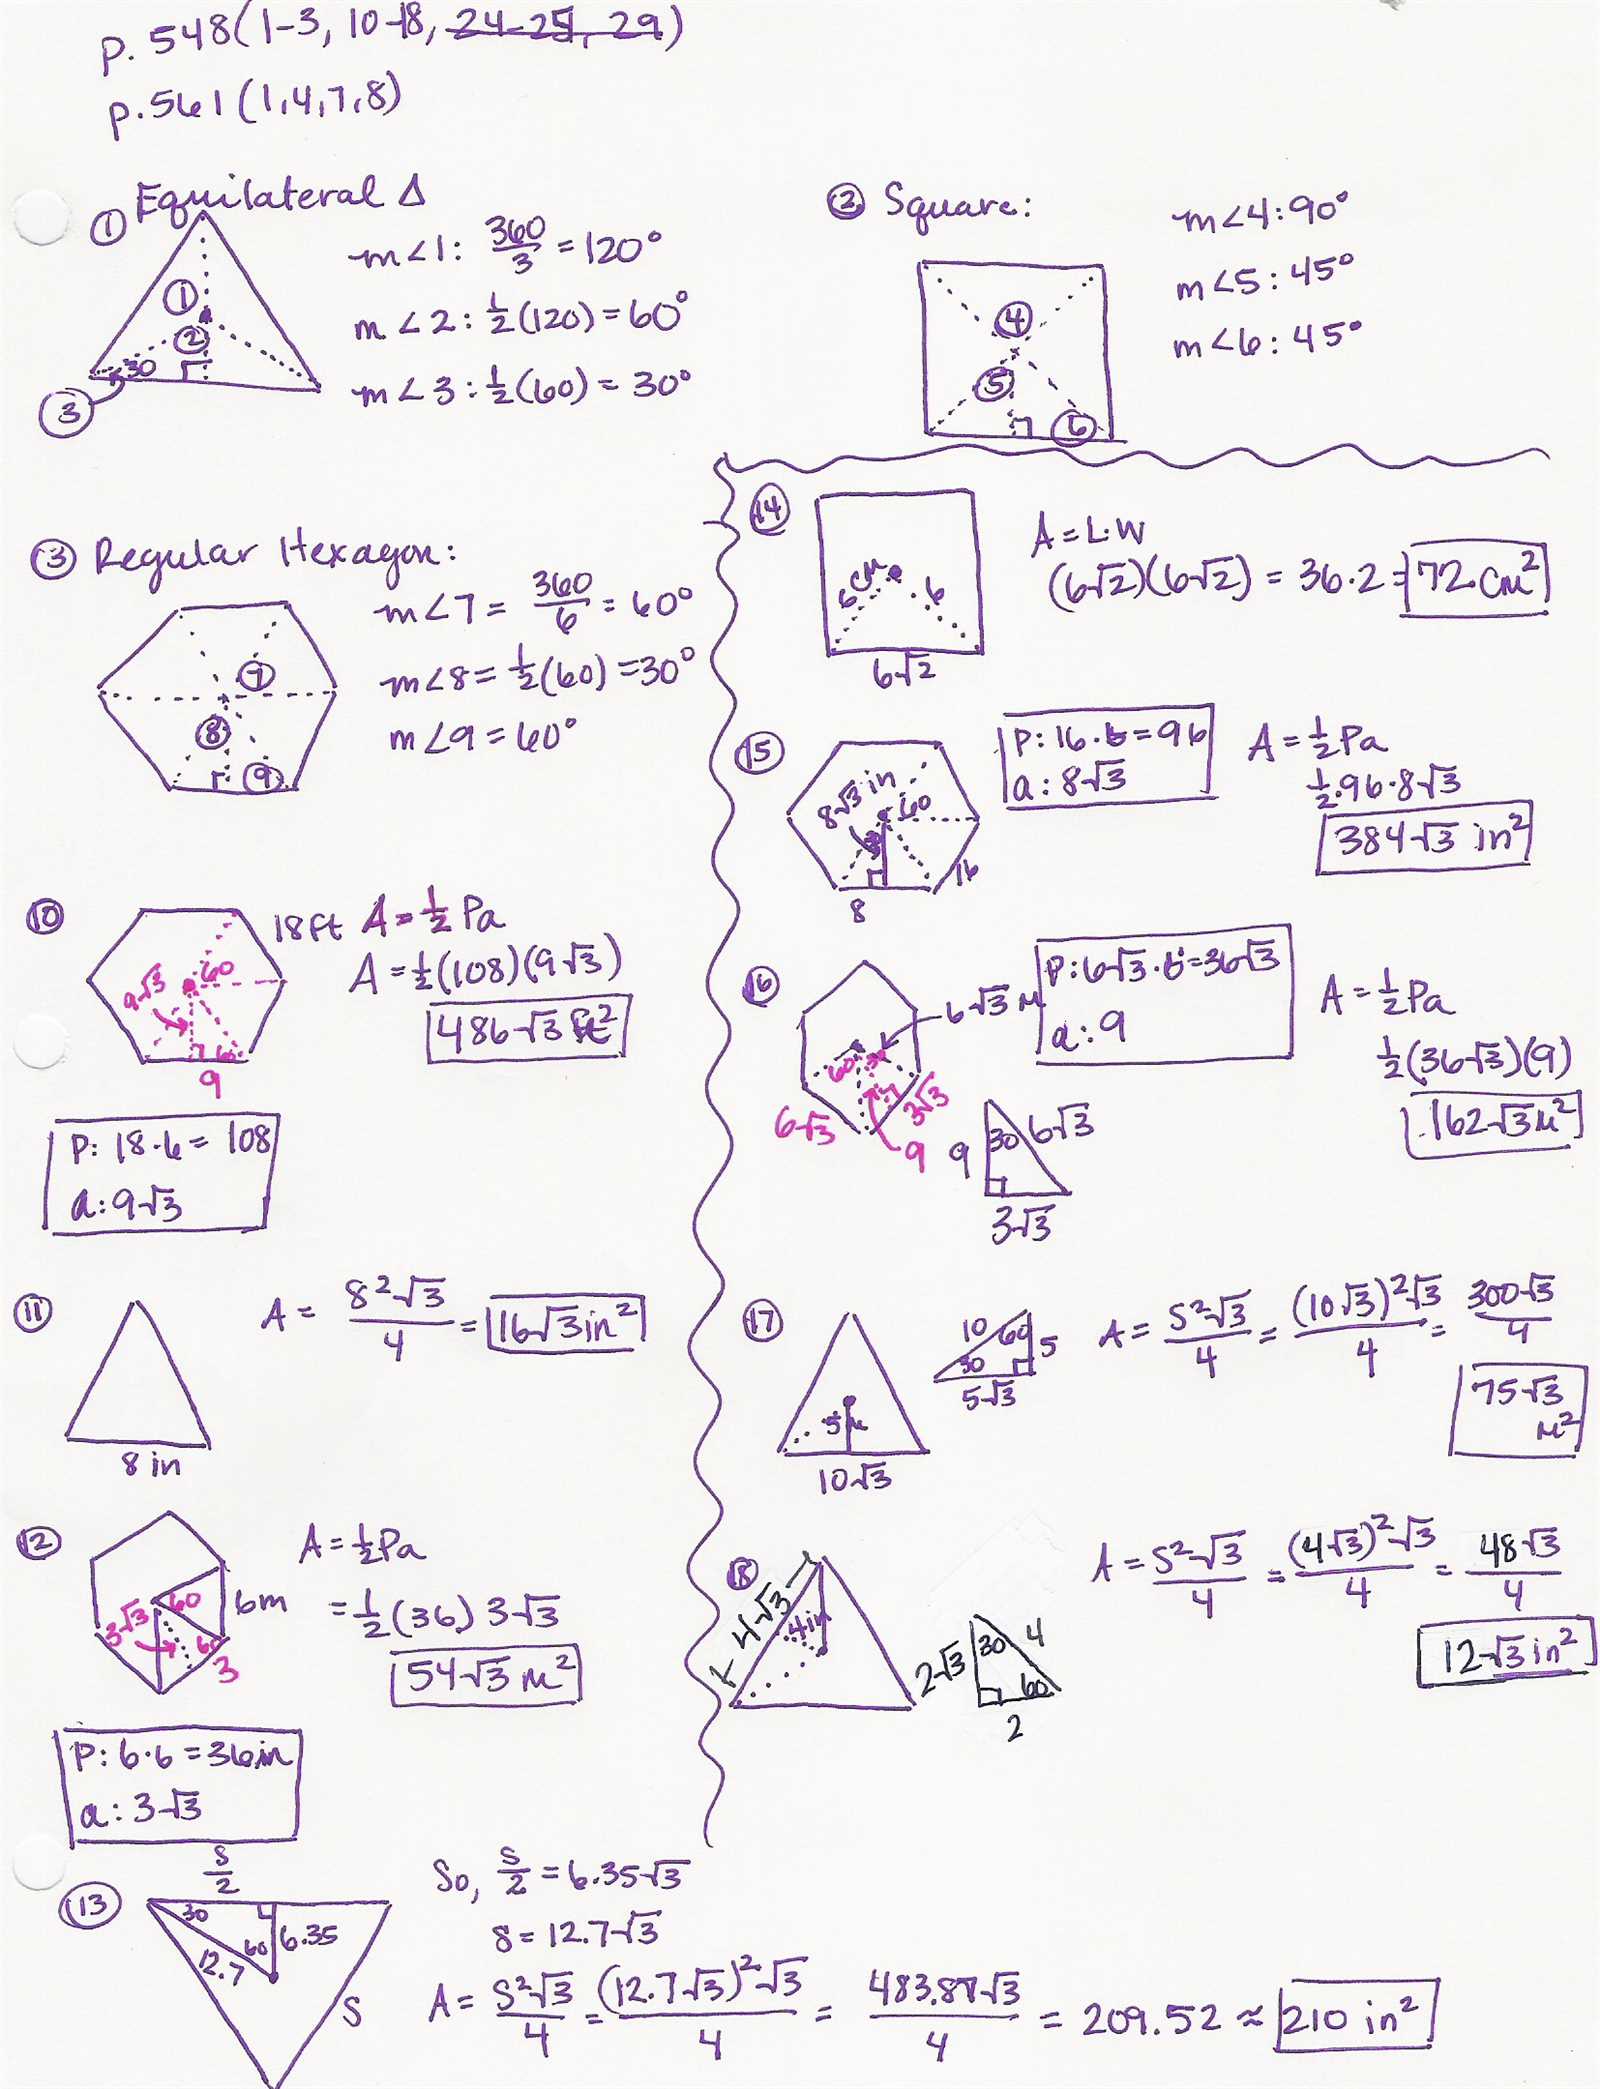 p. 548 (1-3, 10-18, 24-25, 29)
p. 561 (1,4,7,8)
① Equilateral Δ
①
②
30
③
m∠1: 360/3 = 120°
m∠2: ½(120) = 60°
m∠3: ½(60) = 30°
② Square:
④
⑤
⑥
m∠4: 90°
m∠5: 45°
m∠6: 45°
③ Regular Hexagon:
⑦
⑧
⑨
m∠7 = 360/6 = 60°
m∠8 = ½(60) = 30°
m∠9 = 60°
⑩
18ft
9√3
60
60
9
A = ½Pa
A = ½(108)(9√3)
486√3 ft²
P: 18·6 = 108
a: 9√3
⑪
8 in
A = 8²√3/4 = 16√3 in²
⑫
60
6m
3√3
60
3
A = ½Pa
= ½(36) 3√3
54√3 m²
P: 6·6 = 36in
a: 3√3
⑬
s/2
30
60
6.35
12.7
s
So, s/2 = 6.35√3
s = 12.7√3
A = s²√3/4 = (12.7√3)²√3/4 = 483.87√3/4 = 209.52 ≈ 210 in²
⑭
6 cm
6
6√2
A = L·W
(6√2)(6√2) = 36·2 = 72 cm²
⑮
8√3 in
60
30
16
8
P: 16·6 = 96
a: 8√3
A = ½Pa
½·96·8√3
384√3 in²
⑯
6√3 m
60
30
6√3
3√3
9
P: 6√3·6 = 36√3
a: 9
9
30
6√3
3√3
A = ½Pa
½(36√3)(9)
162√3 m²
⑰
5 m
10√3
10
60
30
5
5√3
A = s²√3/4 = (10√3)²√3/4 = 300√3/4
75√3 m²
⑱
4√3
4in
2√3
30
4
60
2
A = s²√3/4 = (4√3)²√3/4 = 48√3/4
12√3 in²